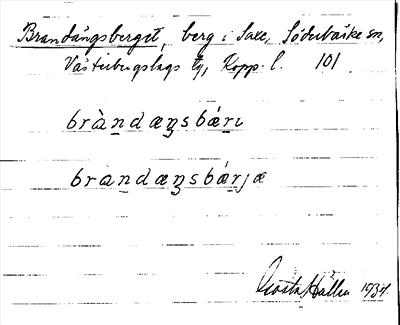 Brandängsberget, berg i Saxe, Söderbärke sn,
Västerbergslags tg, Kopp. l. 101
bràndæŋsbǽrı
bràndæŋsbǽrjæ
Gösta Hallin 1934.